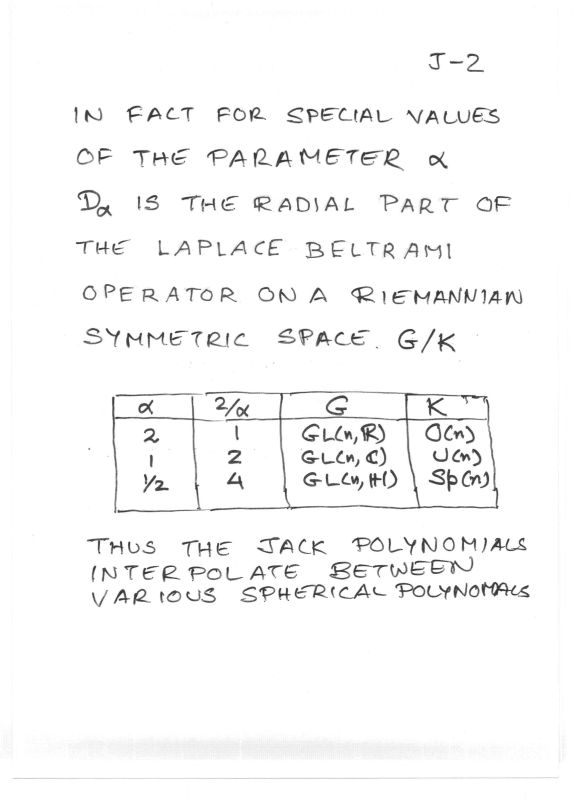 J-2
IN FACT FOR SPECIAL VALUES
OF THE PARAMETER α
Dα IS THE RADIAL PART OF
THE LAPLACE BELTRAMI
OPERATOR ON A RIEMANNIAN
SYMMETRIC SPACE. G/K
α 2/α G K
2 1 GL(n,ℝ) O(n)
1 2 GL(n,ℂ) U(n)
1/2 4 GL(n,ℍ) Sp(n)
THUS THE JACK POLYNOMIALS
INTERPOLATE BETWEEN
VARIOUS SPHERICAL POLYNOMALS